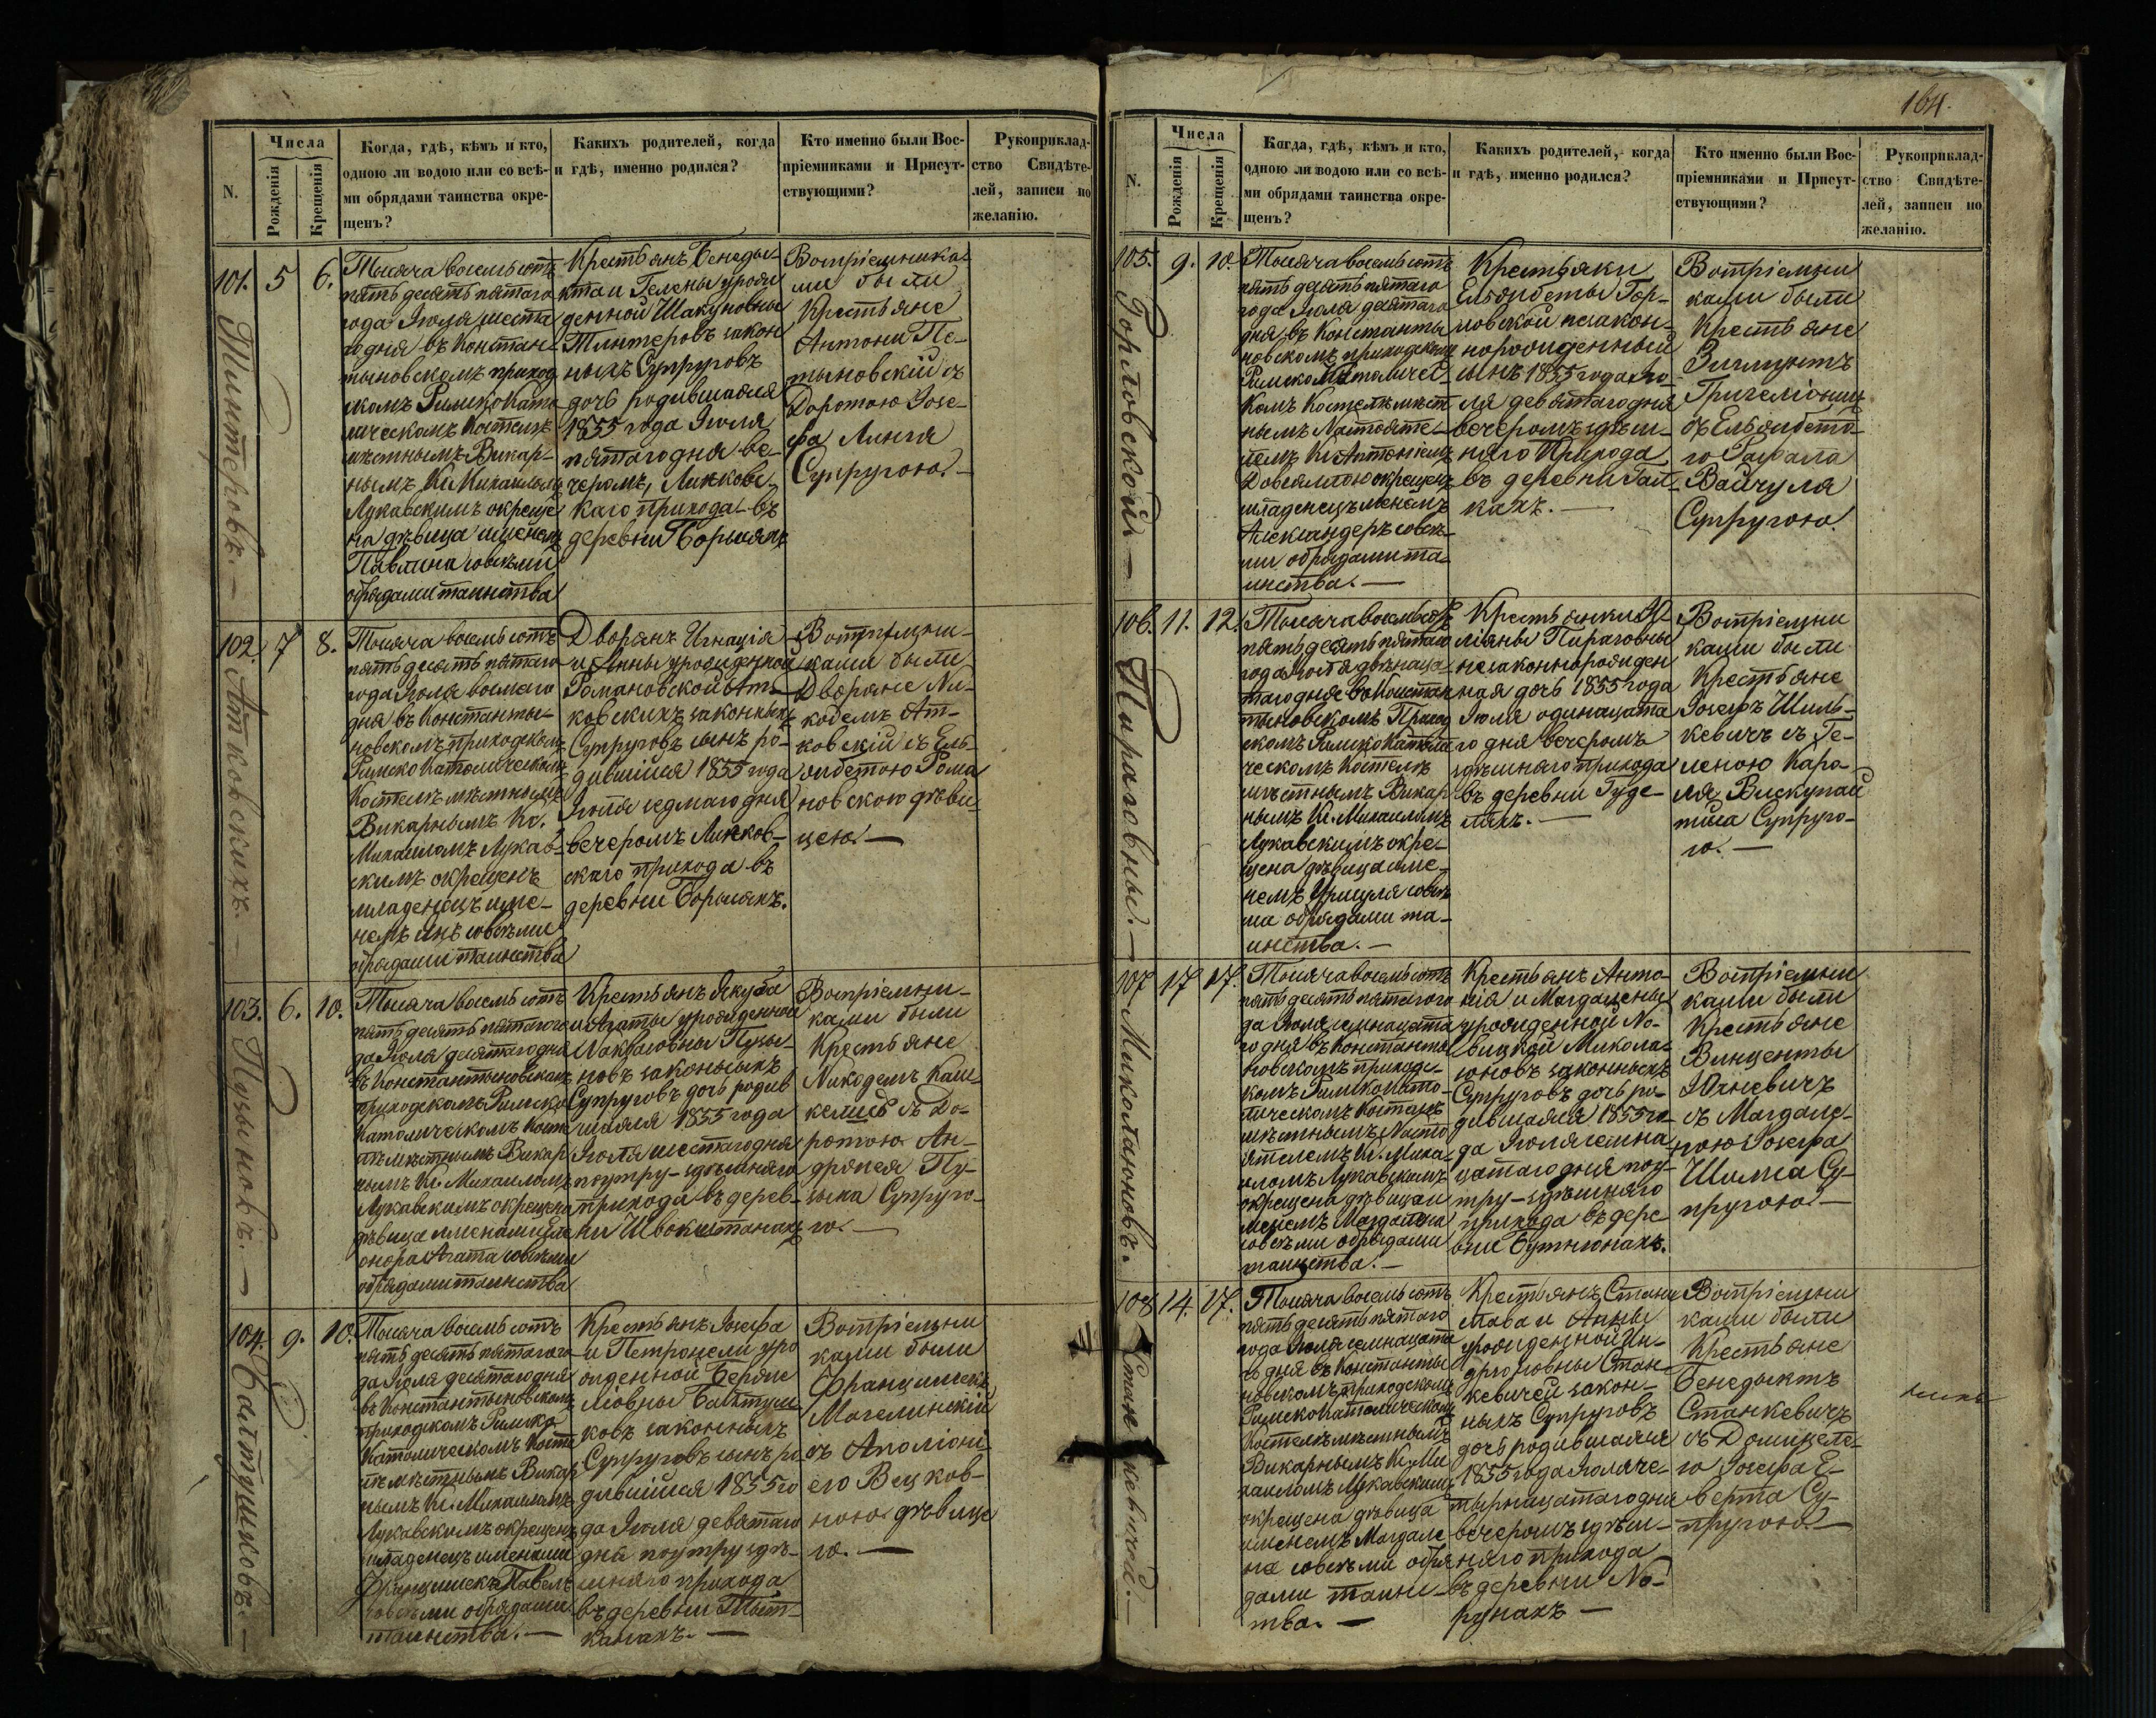 164.
N.
Числа
Рожденія
Крещенія
Когда, гдѣ, кѣмъ и кто,
одною ли водою или со всѣ-
ми обрядами таинства окре-
щенъ?
Какихъ родителей, когда
и гдѣ, именно родился?
Кто именно были Вос-
пріемниками и Присут-
ствующими?
Рукоприклад-
ство Свидѣте-
лей, записи по
желанію.
101. 5 6.
Тысяча восемь сотъ
пять десятъ пятаго
года Іюля шеста
го дня въ Констан-
тыновскомъ приход
скомъ Римско Като
лическомъ Костелѣ
мѣстнымъ Викар-
нымъ Кс. Михаиломъ
Лукавскимъ окреще
на дѣвица именемъ
Павлина совсѣми
обрядами таинства
Крестьянъ Бенеды
кта и Гелены урожд
денной
законныхъ Супруговъ
дочь родившаяся
1855 года Іюля
пятаго дня ве-
черомъ, Линковс-
каго прихода въ
деревни
Воспріемника
ми были
Крестьяне
Антони Пе-
тыновскій съ
Доротою Іозе-
фа
Супругою. —
102. 7 8.
Атковскихъ. —
Тысяча восемь сотъ
пять десятъ пятаго
года Іюля восмаго
дня въ Константы-
новскомъ приходскомъ
Римско Католическомъ
Костелѣ мѣстнымъ
Викарнымъ Кс.
Михаиломъ Лукав-
скимъ окрещенъ
младенецъ име-
немъ Янъ совсѣми
обрядами таинства
Дворянъ Игнація
и Анны урожденной
Романовской Ат-
ковскихъ законныхъ
Супруговъ сынъ ро-
дившійся 1855 года
Іюля седмаго дня
вечеромъ Линков-
скаго прихода въ
деревни
Воспріемни-
ками были
Дворяне Ни-
кодемъ Ат-
ковскій съ Ель-
жбетою Рома
новскою дѣви
цею. —
103. 6. 10.
Пузыновъ. —
Тысяча восемь сотъ
пять десятъ пятаго го
да Іюля десятаго дня
въ Константыновскомъ
приходскомъ Римско
Католическомъ Косте
лѣ мѣстнымъ Викар
нымъ Кс. Михаиломъ
Лукавскимъ окрещена
дѣвица именами Еле
онора Агата совсѣми
обрядами таинства
Крестьянъ Якуба
и Агаты урожденной
Пузы-
новъ законныхъ
Супруговъ дочь родив
шаяся 1855 года
Іюля шестаго дня
поутру здѣшняго
прихода въ дерев-
ни
Воспріемни-
ками были
Крестьяне
Никодемъ
съ До-
ротою Ан-
држея Пу-
зына Супруго-
ю. —
104. 9. 10.
Балтушковъ. —
Тысяча восемь сотъ
пять десятъ пятаго го
да Іюля десятаго дня
въ Константыновскомъ
приходскомъ Римско
Католическомъ Косте
лѣ мѣстнымъ Викар
нымъ Кс. Михаиломъ
Лукавскимъ окрещенъ
младенецъ именами
Францишекъ Павелъ
совсѣми обрядами
таинства. —
Крестьянъ Іозефа
и Петронели уро
жденной
Балтуш
ковъ законныхъ
Супруговъ сынъ ро
дившійся 1855 го
да Іюля девятаго
дня поутру здѣ-
шняго прихода
въ деревни
Воспріемни
ками были
Францишекъ
съ Аполіоні
ею
ною дѣвице
ю. —
N.
Числа
Рожденія
Крещенія
Когда, гдѣ, кѣмъ и кто,
одною ли водою или со всѣ-
ми обрядами таинства окре-
щенъ?
Какихъ родителей, когда
и гдѣ, именно родился?
Кто именно были Вос-
пріемниками и Присут-
ствующими?
Рукоприклад-
ство Свидѣте-
лей, записи по
желанію.
105. 9. 10.
Горловской —
Тысяча восемь сотъ
пять десятъ пятаго
года Іюля десятаго
дня въ Константы
новскомъ приходскомъ
Римско Католичес-
комъ Костелѣ мѣст
нымъ Настояте-
лемъ Кс. Антоніемъ
окрещенъ
младенецъ именемъ
Александеръ совсѣ-
ми обрядами та-
инства. —
Крестьянки
Ельжбеты Гор-
ловской незакон-
норожденный
сынъ 1855 года Ію-
ля девятаго дня
вечеромъ здѣш-
няго Прихода
въ деревни
Воспріемни
ками были
Крестьяне
Зигмунтъ
съ Ельжбето-
ю Рафала
Вайчуля
Супругою.
106. 11. 12.
Пираговны. —
Тысяча восемь сотъ
пять десятъ пятаго
года Іюля двѣнадца
таго дня въ Констан
тыновскомъ Приход
скомъ Римско Католи
ческомъ Костелѣ
мѣстнымъ Викар
нымъ Кс. Михаиломъ
Лукавскимъ окре-
щена дѣвица име-
немъ Уршуля совсѣ
ми обрядами та-
инства. —
Крестьянки Ю-
ліяны Пираговны
незаконнорожден
ная дочь 1855 года
Іюля одинацата
го дня вечеромъ
здѣшняго прихода
въ деревни Гуде-
ляхъ. —
Воспріемни
ками были
Крестьяне
Іозефъ Шиль-
кевичъ съ Ге-
леною Каро-
ля
Супруго-
ю. —
107 17 17.
Миколаюновъ.
Тысяча восемь сотъ
пять десятъ пятаго го
да Іюля семнацата
го дня въ Константы
новскомъ приходс-
комъ Римско Като-
лическомъ Костелѣ
мѣстнымъ Насто
ятелемъ Кс. Миха-
иломъ Лукавскимъ
окрещена дѣвица и
менемъ Магдалена
совсѣми обрядами
таинства. —
Крестьянъ Анто-
нія и Магдалены
урожденной Но-
вицкой Микола-
юновъ законныхъ
Супруговъ дочь ро-
дившаяся 1855 го-
да Іюля семна
цатаго дня поу-
тру здѣшняго
прихода въ дере
вни Бутнюнахъ.
Воспріемни
ками были
Крестьяне
Винценты
Юхневичъ
съ Магдале-
ною Іозефа
Шима Су-
пругою. —
108 14. 17.
Станкевичей. —
Тысяча восемь сотъ
пять десятъ пятаго
года Іюля семнацата
го дня въ Константы
новскомъ приходскомъ
Римско Католическомъ
Костелѣ мѣстнымъ
Викарнымъ Кс. Ми
хаиломъ Лукавскимъ
окрещена дѣвица
именемъ Магдале
на совсѣми обря
дами таинс-
тва. —
Крестьянъ Стани
слава и Анны
урожденной
Стан-
кевичей закон-
ныхъ Супруговъ
дочь родившаяся
1855 года Іюля че-
тырнацатаго дня
вечеромъ здѣш-
няго прихода
въ деревни
Воспріемни
ками были
Крестьяне
Бенедыктъ
Станкевичъ
съ Домицеле-
ю Іозефа
Су-
пругою. —